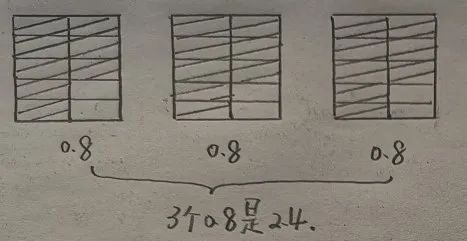 0.8 0.8 0.8
3个0.8是2.4.